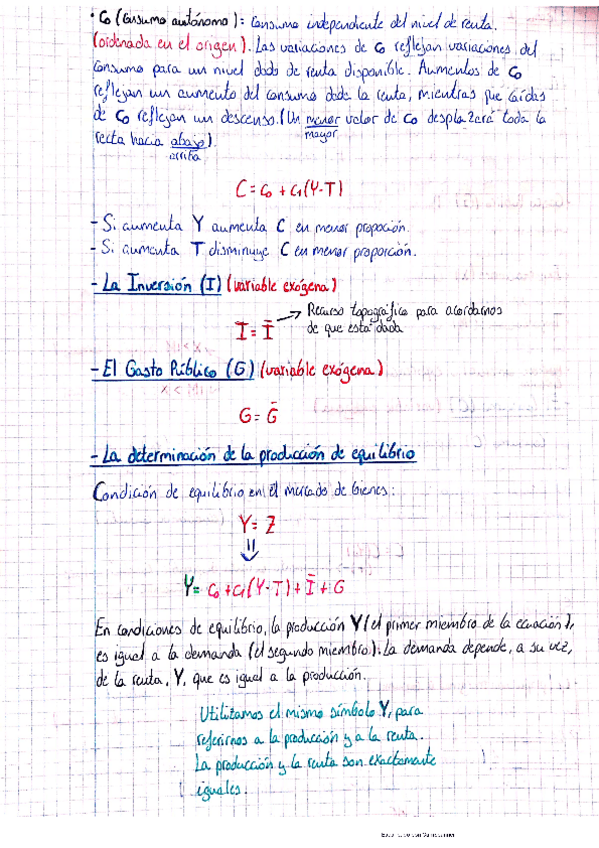 · C₀ (consumo autónomo): Consumo independiente del nivel de renta.
(ordenada en el origen). Las variaciones de C₀ reflejan variaciones del
consumo para un nivel dado de renta disponible. Aumentos de C₀
reflejan un aumento del consumo dada la renta, mientras que caídas
de C₀ reflejan un descenso. (Un menor valor de C₀ desplazará toda la
mayor
recta hacia abajo).
arriba
C = C₀ + C₁(Y-T)
- Si aumenta Y aumenta C en menor proporción.
- Si aumenta T disminuye C en menor proporción.
- La Inversión (I) (variable exógena)
I = Ī → Recurso topográfico para acordarnos
de que está dada
- El Gasto Público (G) (variable exógena)
G = Ḡ
- La determinación de la producción de equilibrio
Condición de equilibrio en el mercado de bienes:
Y = Z
⇓
Y = C₀ + C₁(Y-T) + Ī + G
En condiciones de equilibrio, la producción Y (el primer miembro de la ecuación),
es igual a la demanda (el segundo miembro). La demanda depende, a su vez,
de la renta, Y, que es igual a la producción.
Utilizamos el mismo símbolo Y, para
referirnos a la producción y a la renta.
La producción y la renta son exactamente
iguales.